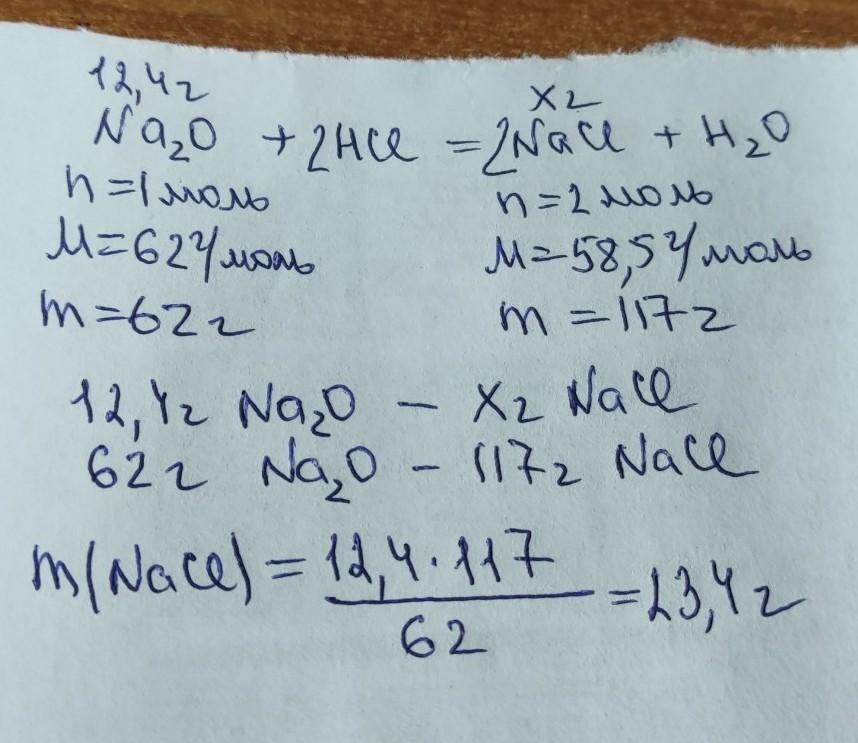 12,4г xг
Na₂O + 2HCl = 2NaCl + H₂O
n=1моль n=2моль
M=62г/моль M=58,5г/моль
m=62г m=117г
12,4г Na₂O – xг NaCl
62г Na₂O – 117г NaCl
m(NaCl) = 12,4·117 / 62 = 23,4г